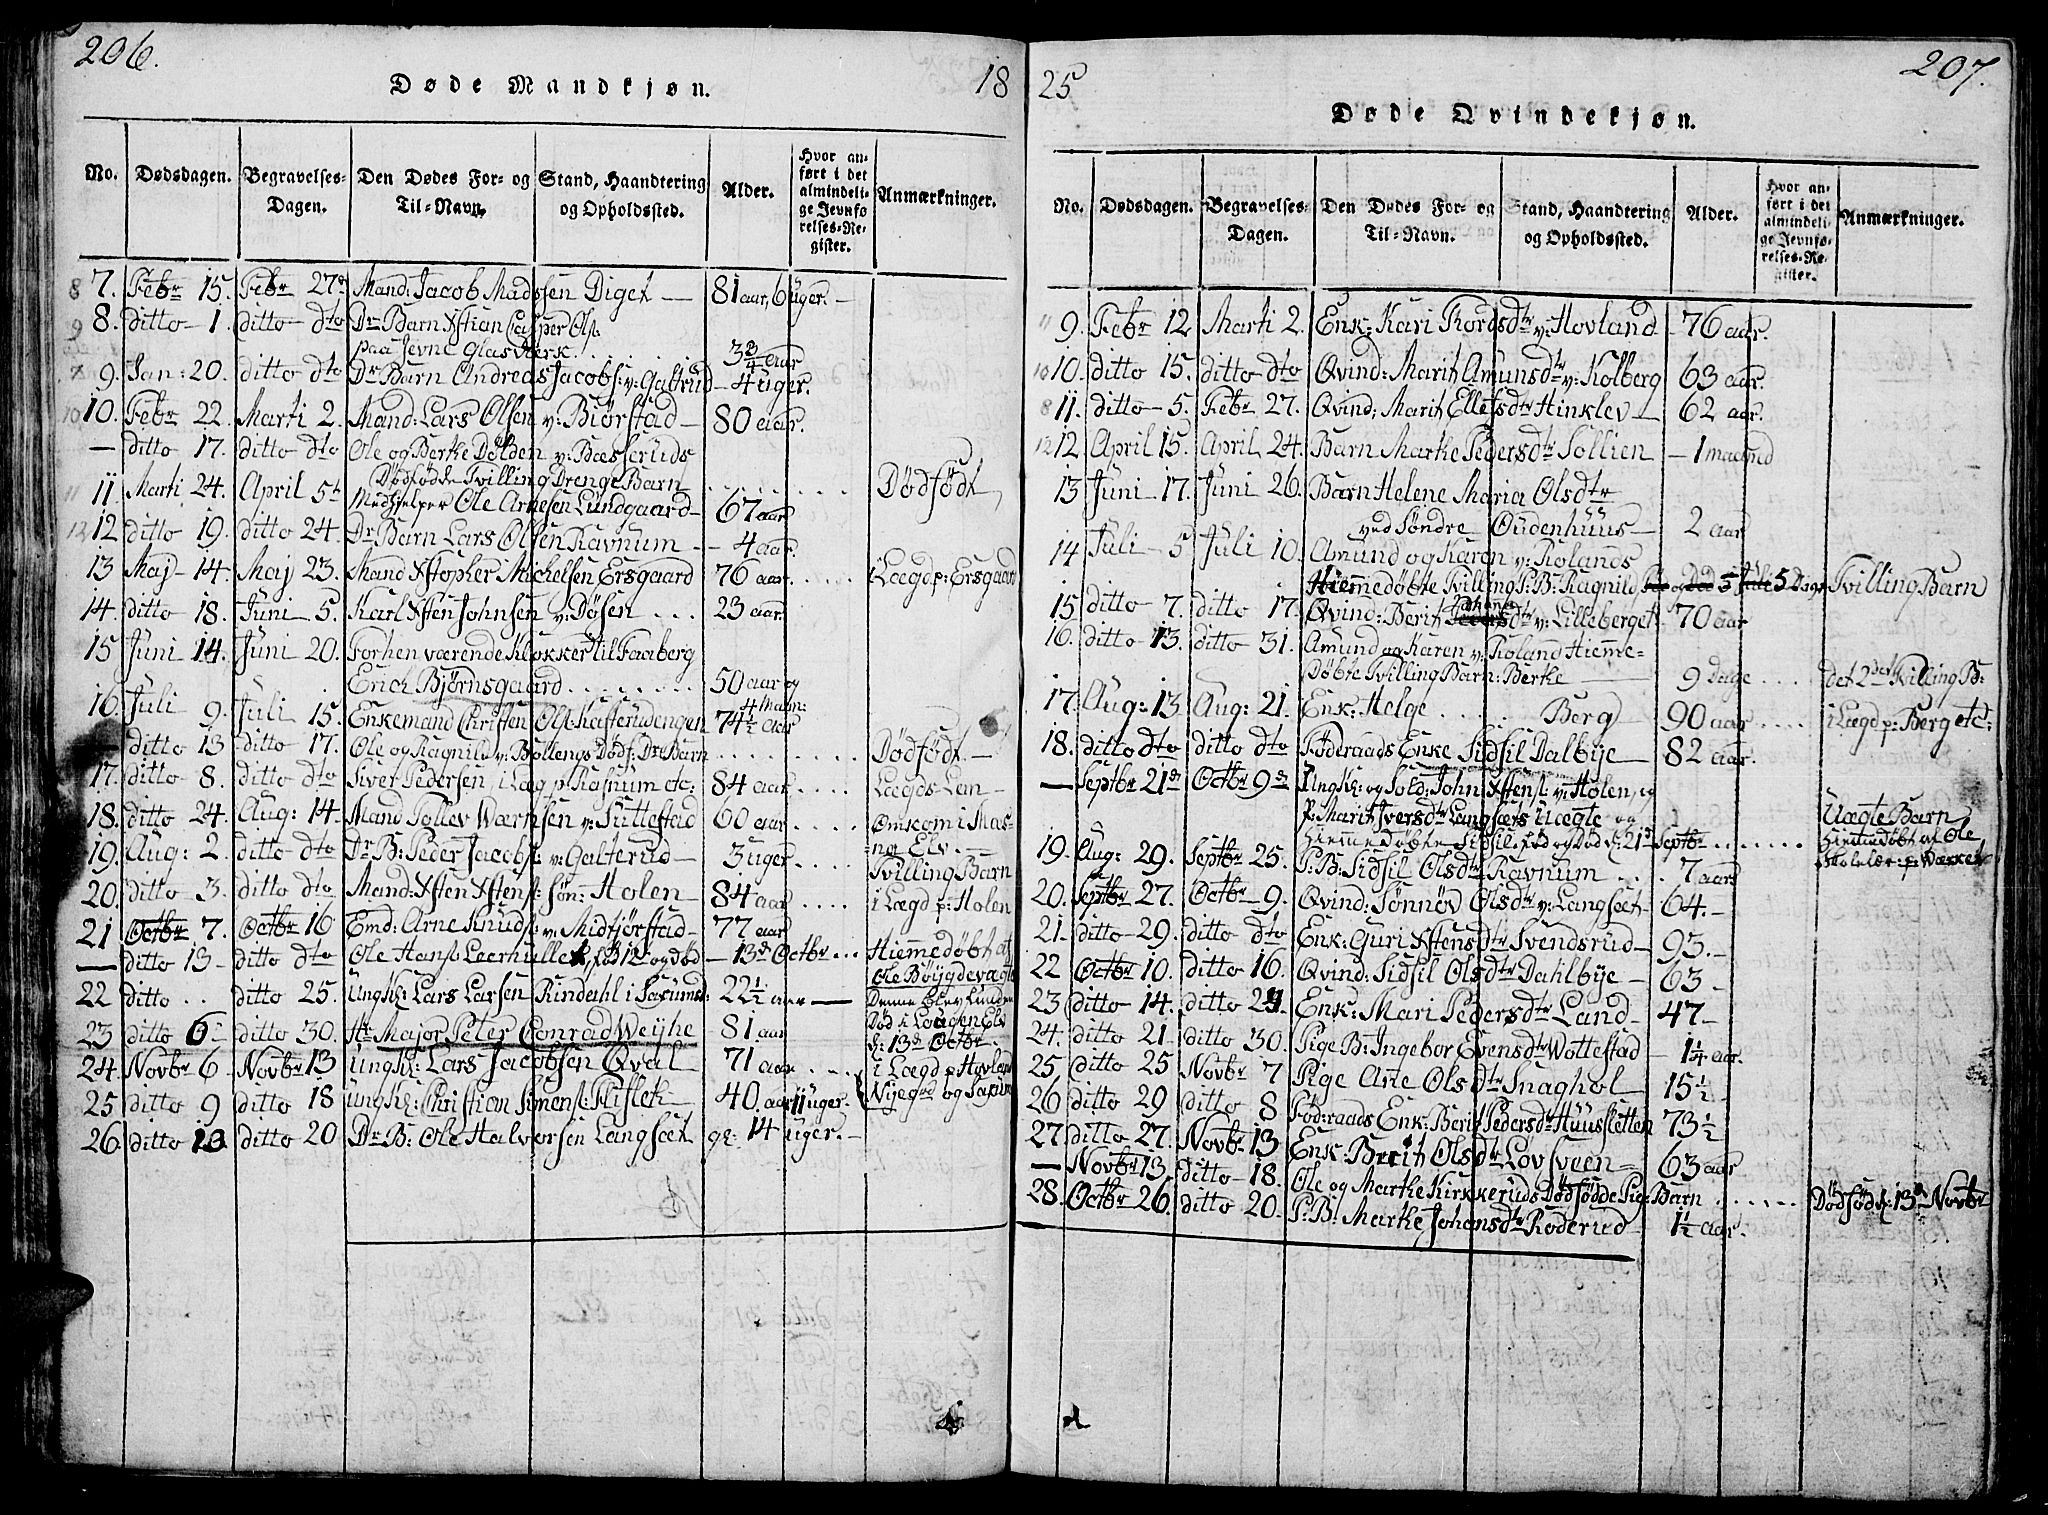 206.
Døde Mandkjøn.
18
No. Dødsdagen. Begravelses-Dagen. Den Dødes For- og Til-Navn. Stand, Haandtering og Opholdssted. Alder. Hvor anført i det almindelige Jevnførelses-Register. Anmærkninger.
8 7. Febr 15. Febr 27de Mand: Jacob Madssen Diget — 81 aar, 6 uger. —
9 8. ditto — 1. ditto — dto Dr Barn Xstian Casper Ols:
paa Jevne Glasværk . . . . 3 3/4 aar
7 9. Jan: 20. ditto dto Dr Barn Andreas Jacobs: v: Galtrud — 4 uger.
10 10. Febr 22. Marti 2. Mand: Lars Olsen v: Biørstad — 80 aar.
— ditto 17. ditto dto Ole og Berte Dølden v: Bæsseruds
Dødfødde Tvilling Drenge Barn . . . . . . . . Dødfødt
11 11 Marti 24. April 5te Medhjelper Ole Arnesen Lundgaard — 67 aar
12 12 ditto 19. ditto 24. Dr Barn Lars Olsen Ravnum — — 4 aar.
13 Maj — 14. Maj 23. Mand Xstopher Michelsen Ersgaard 76 aar. . . . . . i Lægd p: Ersgaard
14. ditto 18. Juni 5. Karl Xsten Johnsen v: Døsen . . . 23 aar.
15 Juni 14. Juni 20. Forhen værende Klokker til Faaberg
Erich Bjørnsgaard . . . . . . . 50 aar og
4 Maan:
16. Juli 9. Juli 15. Enkemand Christen Ols: Kafferudengen 74 1/2 aar
— ditto 13 ditto 17. Ole og Ragnild v: Bollengs Dødf: Dr Barn . . . . . . . . Dødfødt —
17. ditto 8. ditto dto Siver Pedersen i Læg p Rafnum etc: 84 aar . . . . Lægds Len —
18. ditto 24. Aug: 14. Mand Tollev Wærnsen v: Suttestad 60 aar . . . . Omkom i Mæs-
19. Aug: 2. ditto dto Dr B: Peder Jacobs: v: Galterud — 3 uger . . . . na Elv. —
Tvilling Barn
20. ditto 3. ditto dto Mand: Xsten Xstens: Sønn: Holen — 84 aar . . . . i Lægd p: Holen
21 Octbr 7. Octbr 16 Emd: Arne Knuds: v: Midtjørstad — 77 aar
— ditto 13 — ditto dto Ole Hans: Leerhullet, fød 12 og død — 13de Octbr . . . Hiemmedøbt af
Ole Bøygdevægte
22 ditto . . ditto 25. Ungk: Lars Larsen Rindahl i Saxums: 22 1/2 aar — Denne blev funden
23 ditto 6 — ditto 30. Hr Major Peter Conrad Weyhe — 81 aar Død i Lougen Elv
d: 13de Octbr.
24. Novbr 6 — Novbr 13 Ungk: Lars Jacobsen Qval — 71 aar . . . . i Lægd p Hovland
25 ditto 9 ditto 18 Ungk: Christian Simens: Flislet 40 aar 11 uger. Nyegrd og Saxum
26. ditto 13 ditto 20 Dr B: Ole Halvorsen Langseet — 14 uger. —
25
207.
Døde Qvindekjøn.
No. Dødsdagen. Begravelses-Dagen. Den Dødes For- og Til-Navn. Stand, Haandtering og Opholdssted. Alder. Hvor anført i det almindelige Jevnførelses-Register. Anmærkninger.
11 9. Febr 12 Marti 2. Enk: Kari Tordsdtr v: Hovland — 76 aar.
10 10. ditto 15. ditto dto Qvind: Marit Amunsdtr v: Kolberg 63 aar.
8 11. ditto — 5. Febr 27. Qvind: Marit Ellefsdtr Hinklev — 62 aar
12 12 April 15. April 24. Barn Marte Pedersdtr Sollien — 1 maaned
13 Juni — 17. Juni 26. Barn Helene Maria Olsdtr
ved Søndre Oudenhuus — 2 aar
14 Juli — 5 Juli 10. Amund og Karen v: Rolands
Hiemmedøbte Tvilling P: B: Ragnild 5 Dage Tvilling Barn
15 ditto 7. ditto 17. Qvind: Berit Johans dtr v: Lilleberget 70 aar
16. ditto 13. ditto 31. Amund og Karen v: Roland Hiemme-
døbte Tvilling Barn: Berte — 9 Dage . . . . det 2det Tvilling B:
17. Aug: 13. Aug: 21. Enk: Helge . . . . Berg — 90 aar . . . . i Lægd p: Berg etc:
18. ditto dto ditto dto Føderaads Enke Sidsil Dalbye — 82 aar.
— Septbr 21de Octbr 9de Ungk: og Sold: John Xstens: v: Holen, og
P: Marit Iversdtr Langsets Uægte Uægte Barn
Hiemmedøbte Sidsil, fød og død d: 21de Septbr . . . . . . Hiemmedøbt af Ole
19. Aug: 29. Septbr 25. P: B: Sidsil Olsdtr Ravnum . . 7 aar Skolelær: p: Wærket
20. Septbr 27. Octbr 9. Qvind: Sønnøv Olsdtr v: Langseet — 64. —
21 — ditto — 29. ditto dto Enk: Guri Xstensdtr Svendsrud — 93. —
22 Octbr 10. ditto 16. Qvind: Sidsil Olsdtr Dahlbye — 63 —
23 ditto 14. ditto 24 Enk: Mari Pedersdtr Land — 47 —
24. ditto 21 — ditto 30. Pige B: Ingebor Evensdtr Wottestad — 1 1/4 aar.
25 ditto 25 Novbr 7 Pige Ane Olsdtr Snaghol — 15 1/2 —
26 ditto 29 ditto 8 Føderaads Enk: Berit Pedersdr Huusletten 73 1/2
27. ditto 27. Novbr 13 Enk: Berit Olsdtr Løvsveen — 63 aar
— Novbr 13. ditto — 18. Ole og Marte Kirkeruds Dødfødde Pig: Barn . . . . . Dødfød d: 13de Novbr
28. Octbr 26. ditto 20. P: B: Marte Johansdtr Roderud — 1 1/2 aar.